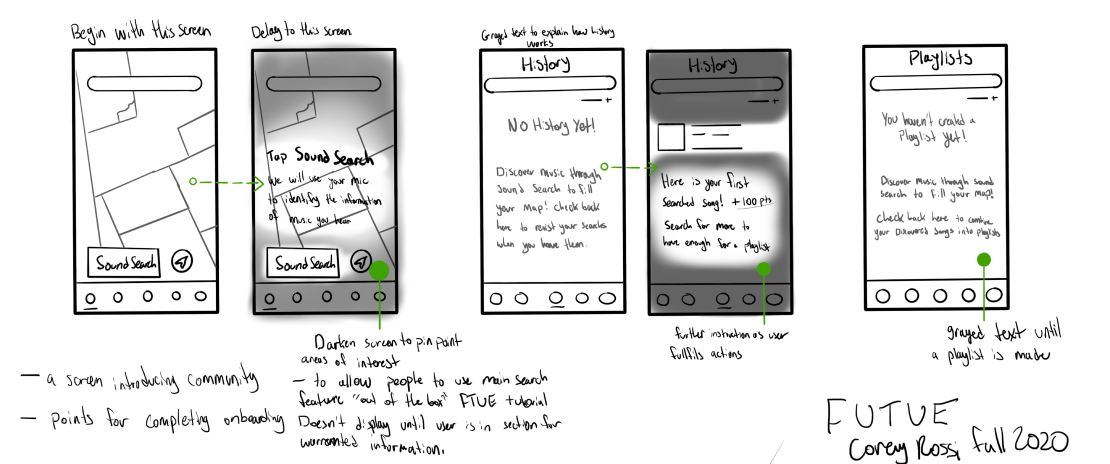 Begin with this screen
Delay to this screen
Tap Sound Search
we will use your mic
to identify the information
of music you hear
Sound Search
Sound Search
Darken screen to pin point
areas of interest
— to allow people to use main search
feature "out of the box" FTUE tutorial
Doesn't display until user is in section for
warranted information.
— a screen introducing community
— points for completing onboarding
Grayed text to explain how history
works
History
No History Yet!
Discover music through
Sound Search to fill
your Map! Check back
here to revisit your searches
when you have them.
History
Here is your first
searched song! +100 pts
Search for more to
have enough for a playlist
further instruction as user
fullfils actions
Playlists
You haven't created a
Playlist yet!
Discover music through sound
search to fill your map!
Check back here to combine
your Discovered songs into playlists
grayed text until
a playlist is made
FUTUE
Corey Rossi Fall 2020